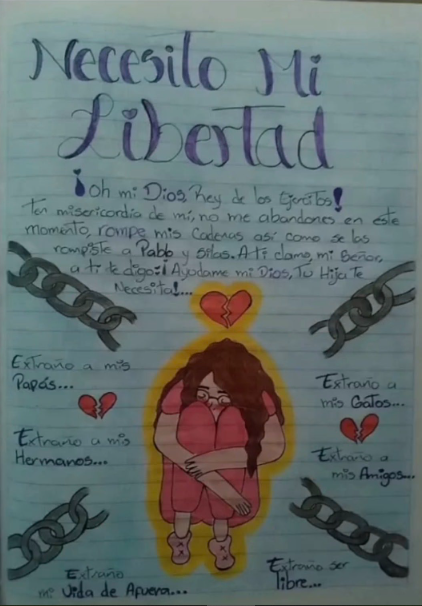 Necesito Mi
Libertad
¡Oh mi Dios, Rey de los Ejercitos!
Ten misericordia de mí, no me abandones en este
momento, rompe mis Cadenas así como se las
rompiste a Pablo y Silas. A ti clamo, mi Señor,
a ti te digo: ¡Ayudame mi Dios, Tu Hija te
Necesita!...
Extraño a mis
Papás...
Extraño a
mis Gatos...
Extraño a mis
Hermanos...
Extraño a
mis Amigos...
Extraño
mi Vida de Afuera...
Extraño ser
libre...